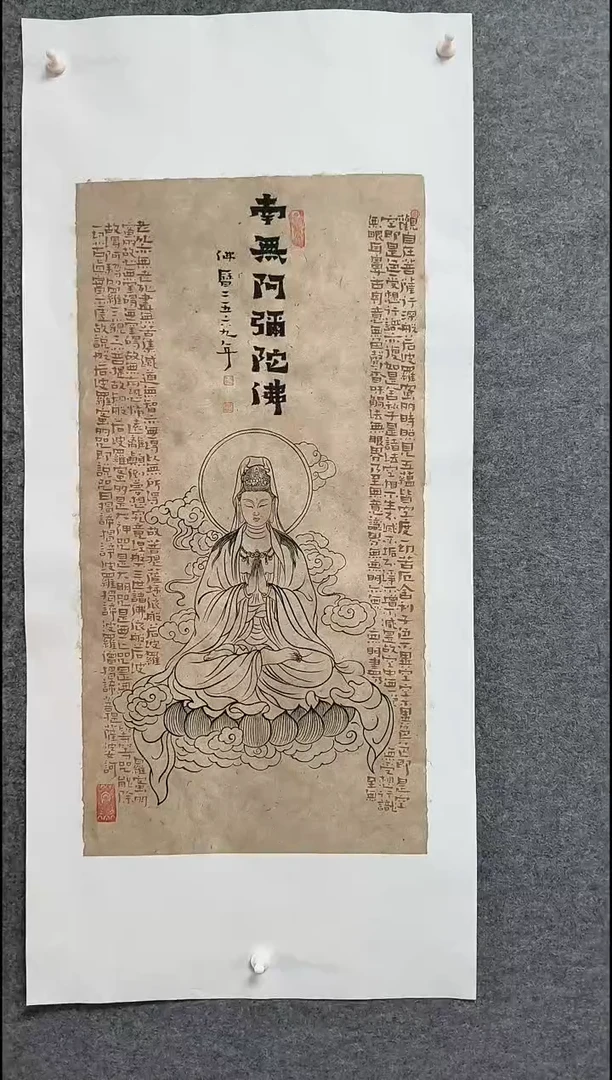 觀自在菩薩行深般若波羅蜜多時照見五蘊皆空度一切苦厄舍利子色不異空空不異色色即是空
空即是色受想行識亦復如是舍利子是諸法空相不生不滅不垢不淨不增不減是故空中無色無受想行識
無眼耳鼻舌身意無色聲香味觸法無眼界乃至無意識界無無明亦無無明盡乃至無
南無阿彌陀佛
佛曆二五二九年
老死亦無老死盡無苦集滅道無智亦無得以無所得故菩提薩埵依般若波羅蜜多
故心無罣礙無罣礙故無有恐怖遠離顛倒夢想究竟涅槃三世諸佛依般若波
故得阿耨多羅三藐三菩提故知般若波羅蜜多是大神咒是大明咒是無上咒是無等等咒能除
一切苦真實不虛故說般若波羅蜜多咒即說咒曰揭諦揭諦波羅揭諦波羅僧揭諦菩提薩婆訶